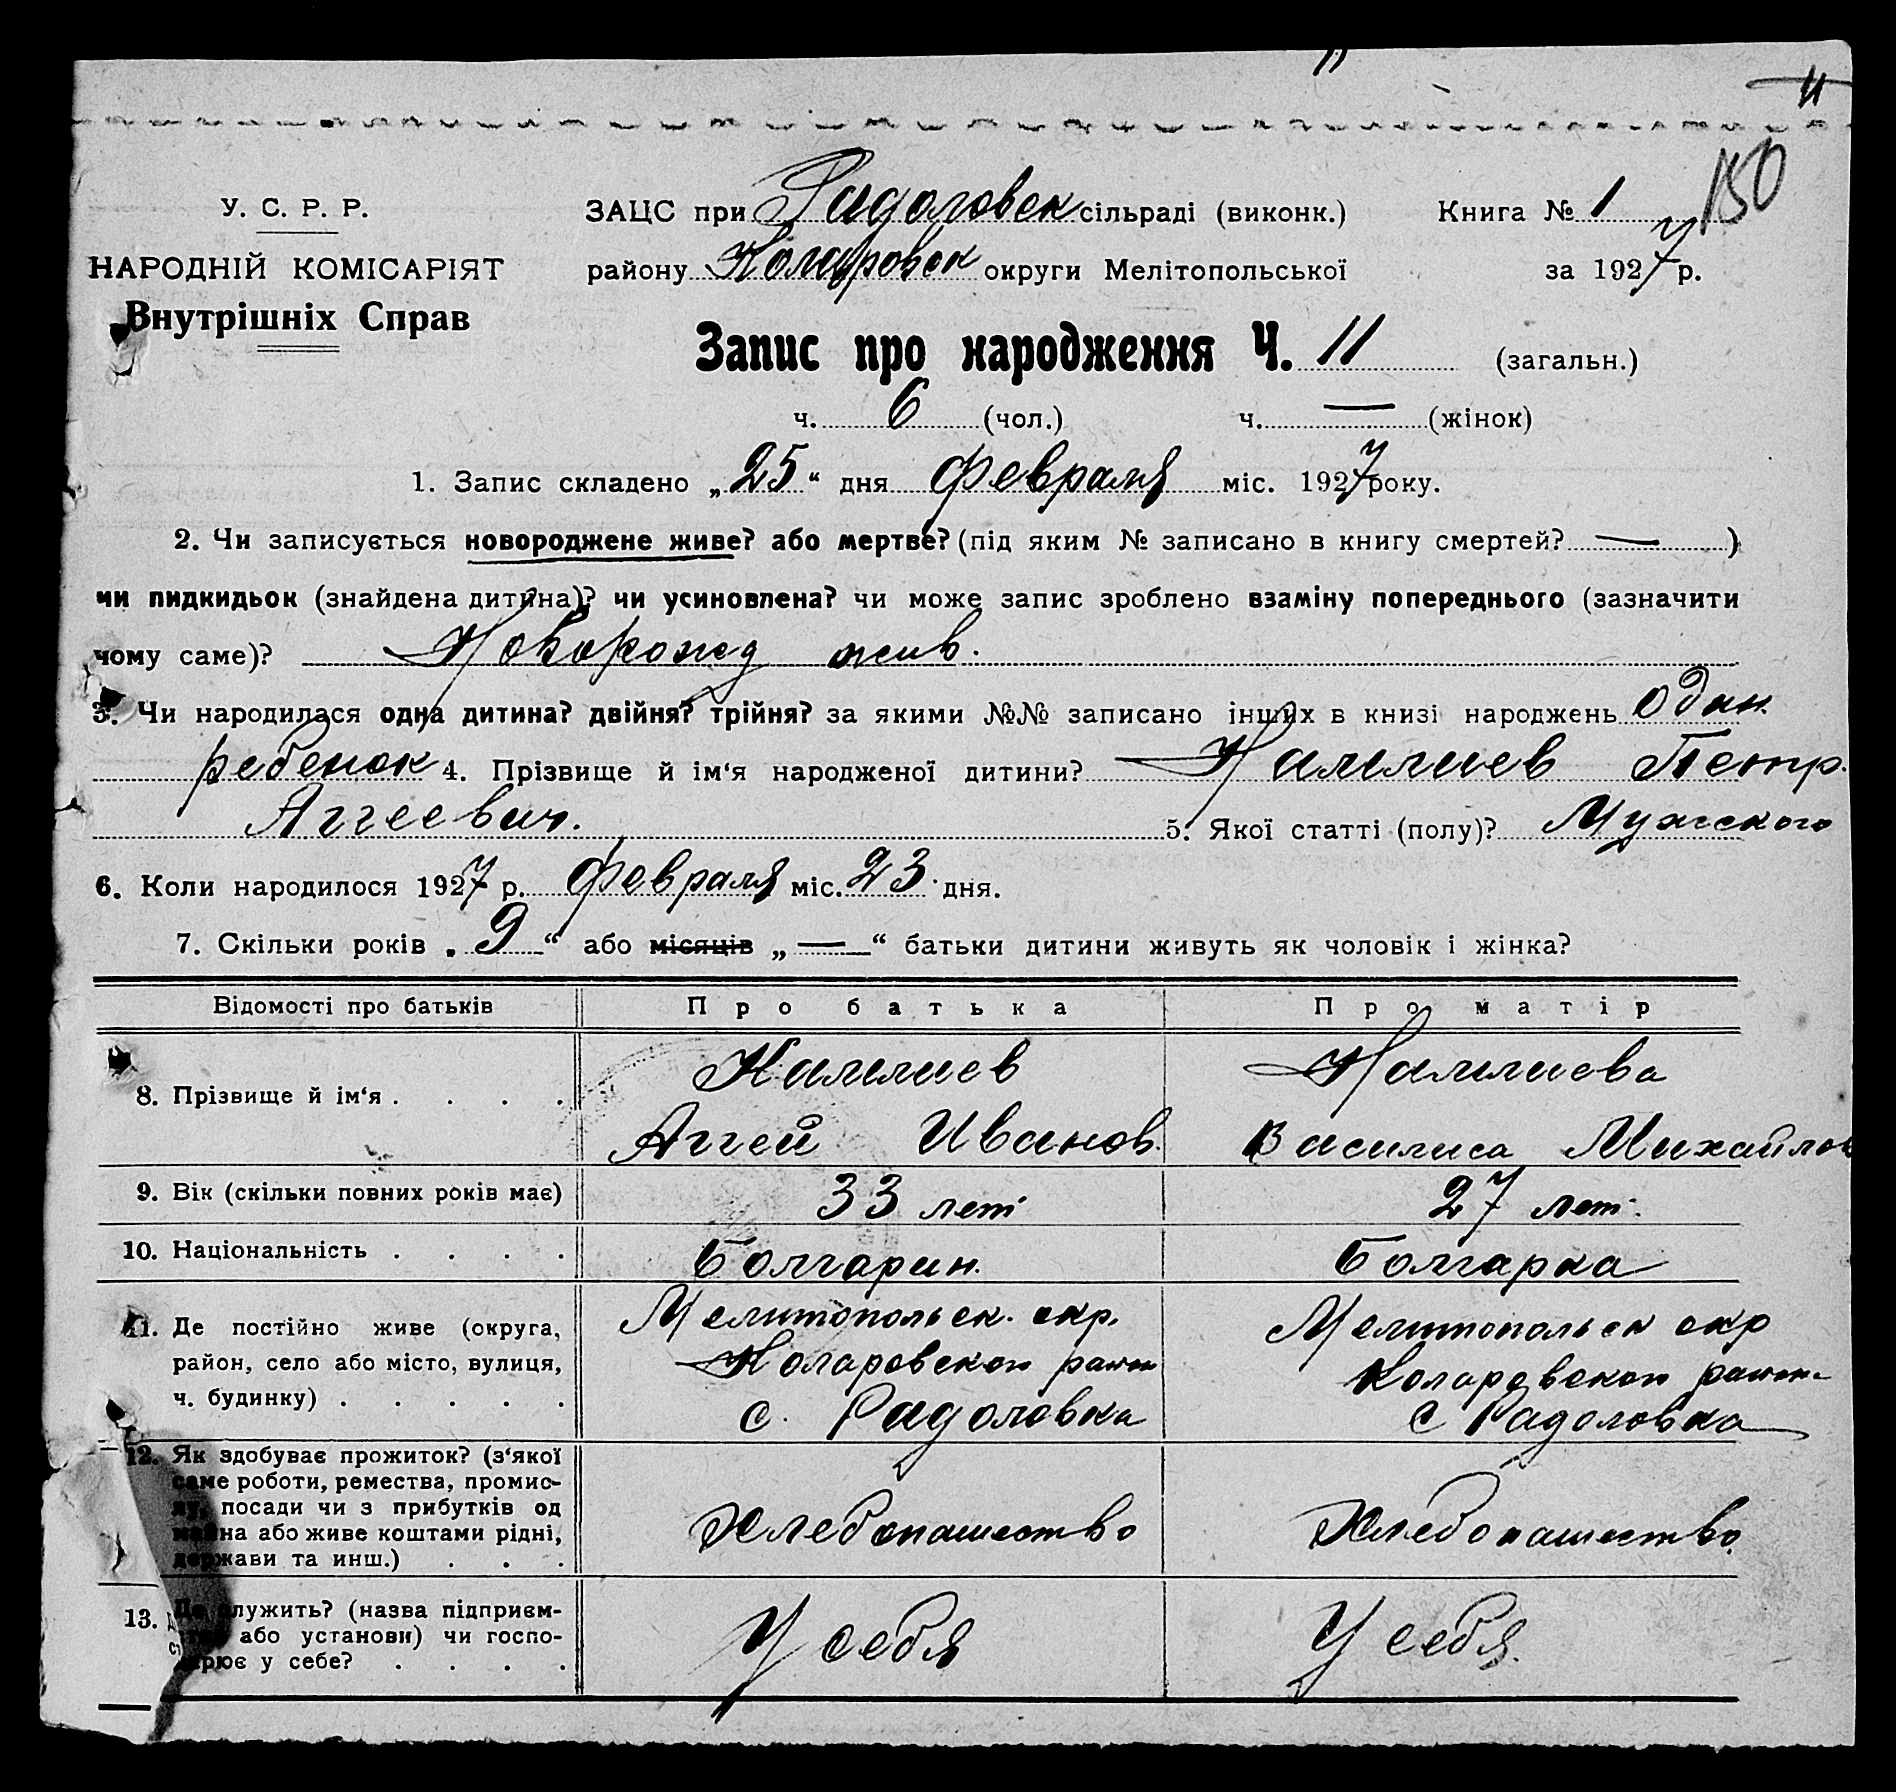 11
11
150
У. С. Р. Р.
НАРОДНІЙ КОМІСАРІЯТ
Внутрішніх Справ
ЗАЦС при Радоловск сільраді (виконк.) Книга № 1
району Коларовск округи Мелітопольської за 1927 р.
Запис про народження Ч. 11 (загальн.)
ч. 6 (чол.) ч. — (жінок)
1. Запис складено „25“ дня февраля міс. 1927 року.
2. Чи записується новороджене живе? або мертве? (під яким № записано в книгу смертей? — )
чи пидкидьок (знайдена дитина)? чи усиновлена? чи може запис зроблено взаміну попереднього (зазначити
чому саме)? Новорожд жив.
3. Чи народилася одна дитина? двійня? трійня? за якими №№ записано інших в книзі народжень один
ребенок 4. Прізвище й ім‘я народженої дитини? Калмиев Петр
Аггеевич. 5. Якої статті (полу)? Мужского
6. Коли народилося 1927 р. февраля міс. 23 дня.
7. Скільки років „9“ або місяців „—“ батьки дитини живуть як чоловік і жінка?
Відомості про батьків Про батька Про матір
8. Прізвище й ім‘я . . . . Калмиев Калмиева
Аггей Иванов. Василиса Михайлов
9. Вік (скільки повних років має) 33 лет 27 лет.
10. Національність . . . . Болгарин. Болгарка
11. Де постійно живе (округа, Мелитопольск. окр. Мелитопольск окр
район, село або місто, вулиця, Коларовского район Коларовского район
ч. будинку) . . . . . с. Радоловка с Радоловка
12. Як здобуває прожиток? (з‘якої
саме роботи, ремества, промис-
лу, посади чи з прибутків од
майна або живе коштами рідні, Хлебопашество Хлебопашество
держави та инш.) . . .
13. Де служить? (назва підприєм-
або установи) чи госпо- У себя У себя.
дарює у себе? . . . .